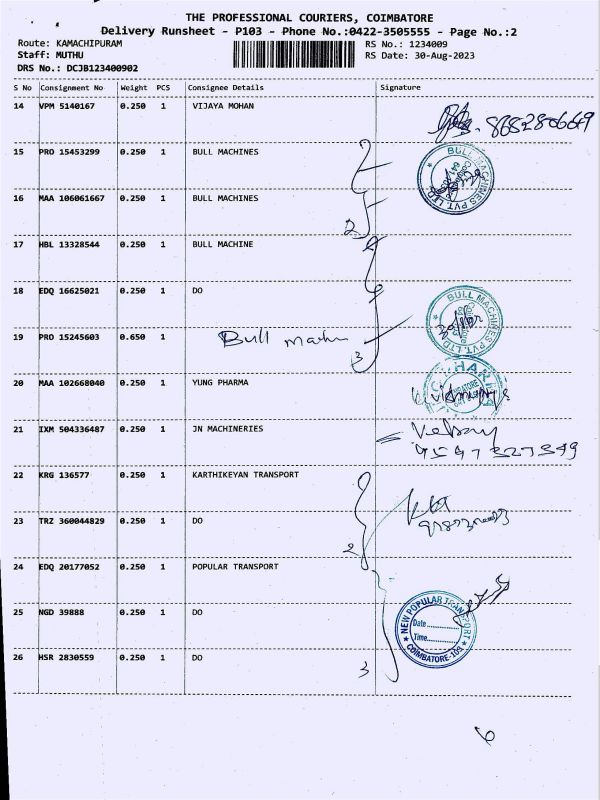 THE PROFESSIONAL COURIERS, COIMBATORE
Delivery Runsheet - P103 - Phone No.:0422-3505555 - Page No.:2
Route: KAMACHIPURAM RS No.: 1234009
Staff: MUTHU RS Date: 30-Aug-2023
DRS No.: DCJB123400902
S No Consignment No Weight PCS Consignee Details Signature
14 VPM 5140167 0.250 1 VIJAYA MOHAN
15 PRO 15453299 0.250 1 BULL MACHINES
BULL MACHINES PVT. LTD.
16 MAA 106061667 0.250 1 BULL MACHINES
2
17 HBL 13328544 0.250 1 BULL MACHINE
18 EDQ 16625021 0.250 1 DO
BULL MACHINES PVT. LTD
19 PRO 15245603 0.650 1 Bull
3
20 MAA 102668040 0.250 1 YUNG PHARMA
21 IXM 504336487 0.250 1 JN MACHINERIES
22 KRG 136577 0.250 1 KARTHIKEYAN TRANSPORT
23 TRZ 360044829 0.250 1 DO
2
24 EDQ 20177052 0.250 1 POPULAR TRANSPORT
25 NGD 39888 0.250 1 DO
NEW POPULAR TRANSPORT
Date..............
Time..............
COIMBATORE-103
26 HSR 2830559 0.250 1 DO
3
6